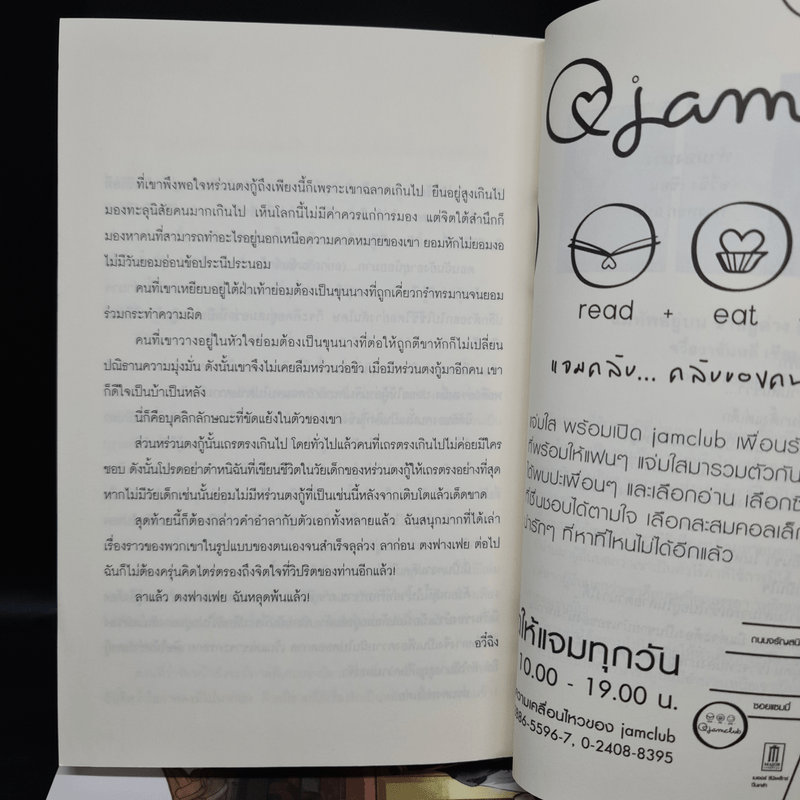 ที่เขาพึงพอใจหร่วนตงกู้ถึงเพียงนี้ก็เพราะเขาฉลาดเกินไป ยืนอยู่สูงเกินไป
มองทะลุนิสัยคนมากเกินไป เห็นโลกนี้ไม่มีค่าควรแก่การมอง แต่จิตใต้สำนึกก็
มองหาคนที่สามารถทำอะไรอยู่นอกเหนือความคาดหมายของเขา ยอมหักไม่ยอมงอ
ไม่มีวันยอมอ่อนข้อประนีประนอม
คนที่เขาเหยียบอยู่ใต้ฝ่าเท้าย่อมต้องเป็นขุนนางที่ถูกเคี่ยวกรำทรมานจนยอม
ร่วมกระทำความผิด
คนที่เขาวางอยู่ในหัวใจย่อมต้องเป็นขุนนางที่ต่อให้ถูกตีขาหักก็ไม่เปลี่ยน
ปณิธานความมุ่งมั่น ดังนั้นเขาจึงไม่เคยลืมหร่วนว่อชิว เมื่อมีหร่วนตงกู้มาอีกคน เขา
ก็ดีใจเป็นบ้าเป็นหลัง
นี่ก็คือบุคลิกลักษณะที่ขัดแย้งในตัวของเขา
ส่วนหร่วนตงกู้นั้นเถรตรงเกินไป โดยทั่วไปแล้วคนที่เถรตรงเกินไปไม่ค่อยมีใคร
ชอบ ดังนั้นโปรดอย่าตำหนิฉันที่เขียนชีวิตในวัยเด็กของหร่วนตงกู้ให้เถรตรงอย่างที่สุด
หากไม่มีวัยเด็กเช่นนั้นย่อมไม่มีหร่วนตงกู้ที่เป็นเช่นนี้หลังจากเติบโตแล้วเด็ดขาด
สุดท้ายนี้ก็ต้องกล่าวคำอำลากับตัวเอกทั้งหลายแล้ว ฉันสนุกมากที่ได้เล่า
เรื่องราวของพวกเขาในรูปแบบของตนเองจนสำเร็จลุล่วง ลาก่อน ตงฟางเฟย ต่อไป
ฉันก็ไม่ต้องครุ่นคิดไตร่ตรองถึงจิตใจที่วิปริตของท่านอีกแล้ว!
ลาแล้ว ตงฟางเฟย ฉันหลุดพ้นแล้ว!
อวี๋ฉิง
@jam
read + eat
แจมคลับ... คลับของคน
แจ่มใส พร้อมเปิด jamclub เพื่อนรั
ที่พร้อมให้แฟนๆ แจ่มใสมารวมตัวกัน
ได้พบปะเพื่อนๆ และเลือกอ่าน เลือกซื้
ที่ชื่นชอบได้ตามใจ เลือกสะสมคอลเล็ก
น่ารักๆ ที่หาที่ไหนไม่ได้อีกแล้ว
ให้แจมทุกวัน
10.00 - 19.00 น.
ความเคลื่อนไหวของ jamclub
886-5596-7, 0-2408-8395
ถนนจรัญสนิ
ซอยแซมมี่
@jamclub